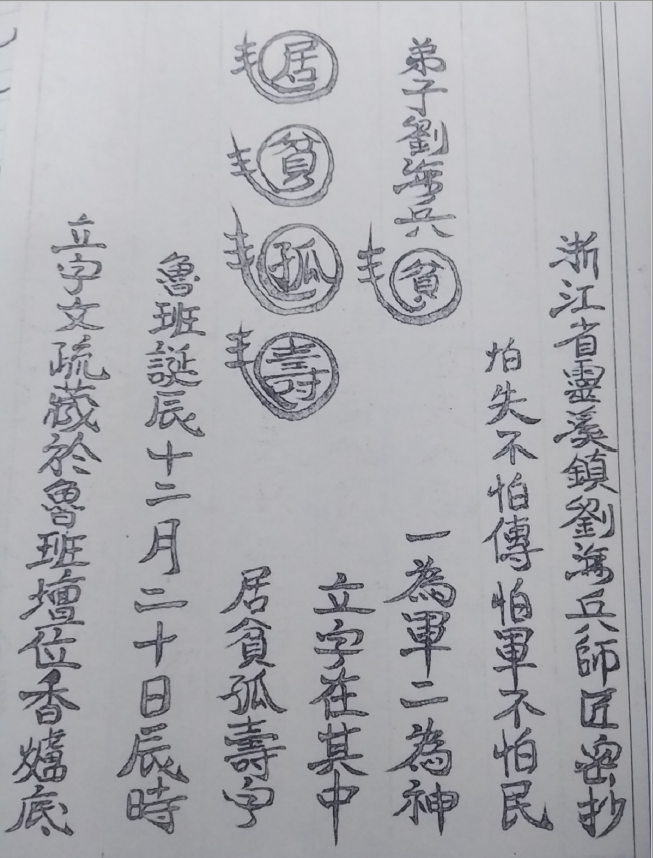 浙江省靈溪鎮劉海兵師匠密抄
怕失不怕傳怕軍不怕民
弟子劉海兵 貧
一為軍二為神
立字在其中
居 貧 孤 壽
居貧孤壽字
魯班誕辰十二月二十日辰時
立字文疏藏於魯班壇位香爐底